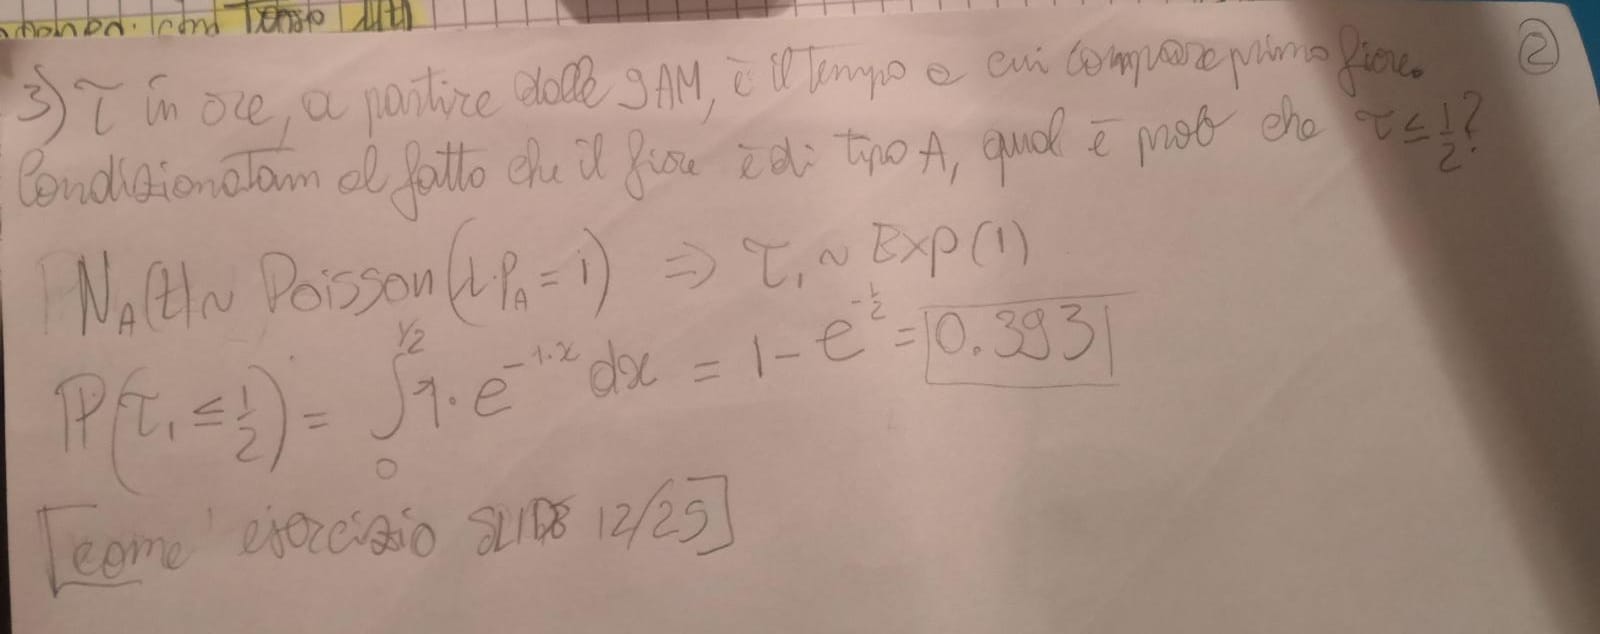 con Tempo
2
3) τ in ore, a partire dalle 9AM, è il tempo a cui compare primo fiore.
Condizionatam al fatto che il fiore è di tipo A, qual è prob che τ ≤ 1/2?
N_A(t) ~ Poisson(λ·p_A = 1) ⇒ τ₁ ~ Exp(1)
P(τ₁ ≤ 1/2) = ∫₀^{1/2} 1·e^{-1·x} dx = 1 - e^{-1/2} = 0.393
[come esercizio SLIDE 12/25]